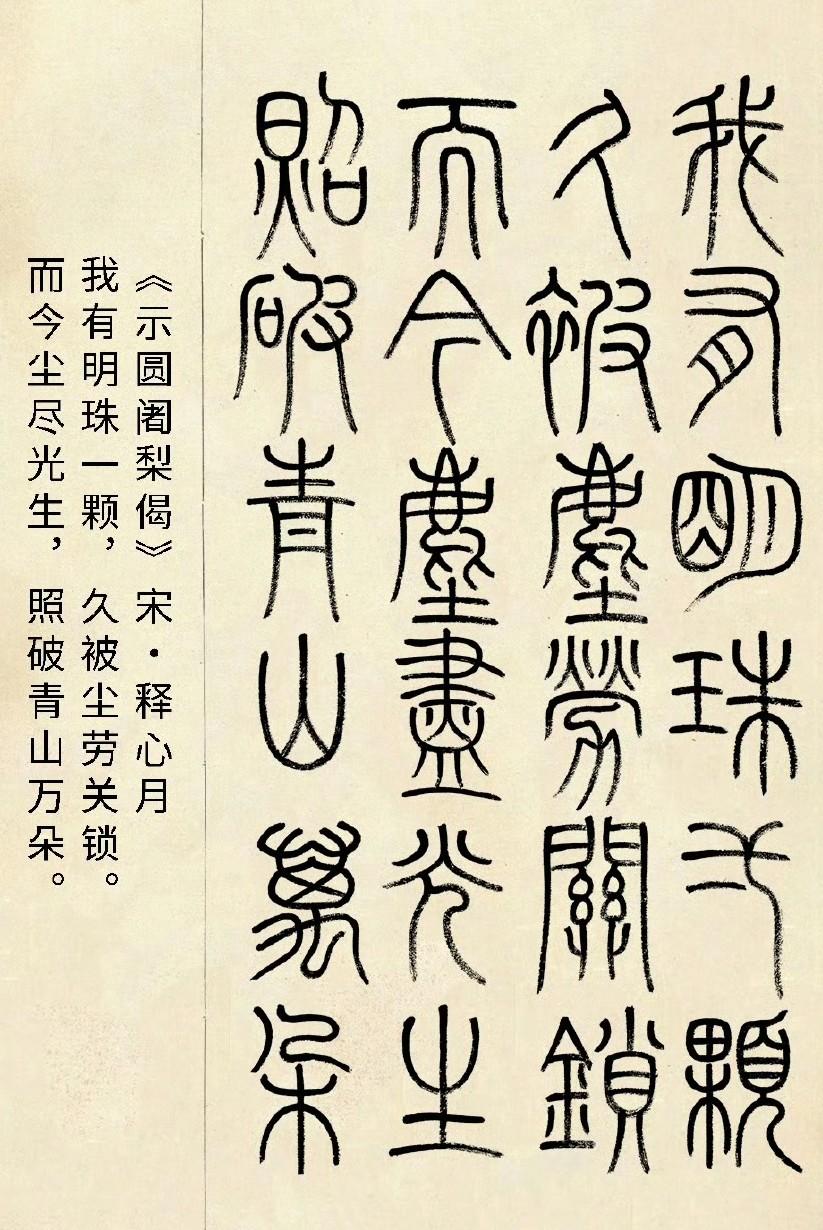 我有明珠弌顆
久被塵勞關鎖
而今塵盡光生
照破青山萬朵
《示圆阇梨偈》宋·释心月
我有明珠一颗，久被尘劳关锁。
而今尘尽光生，照破青山万朵。